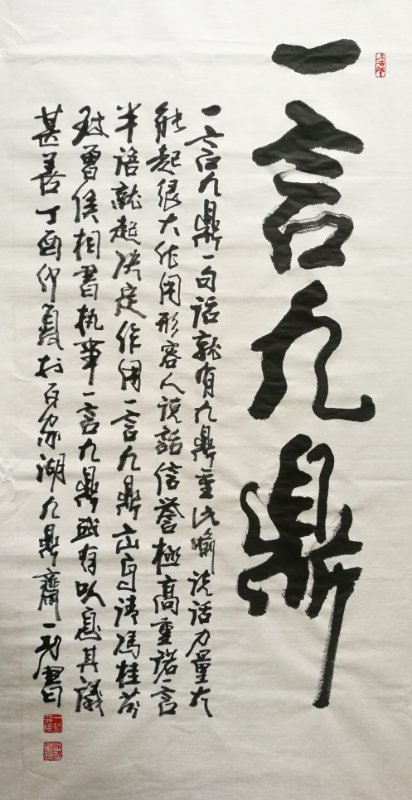 一言九鼎
一言九鼎一句话就有九鼎重比喻说话力量大
能起很大作用形容人说話信誉極高重诺言
半语就起决定作用一言九鼎出自清馮桂芬
致曾侯相書執事一言九鼎或有以息其議
甚善丁酉仲夏於百家湖九鼎齋一書